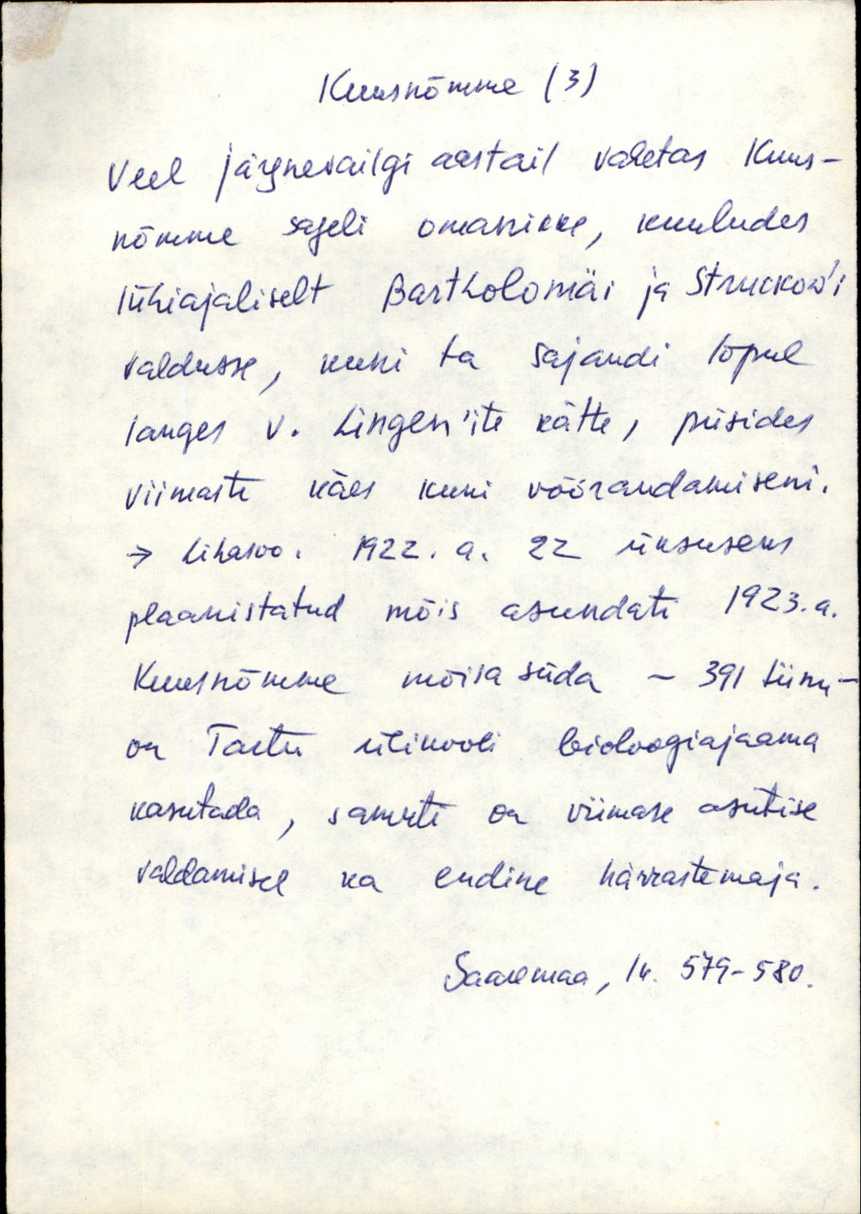 Kuusnõmme (3)
Veel järgnevailgi aastail vahetas Kuus-
nõmme sageli omanikke, kuuludes
lühiajaliselt Bartholomäi ja Struckow'i
valdusse, kuni ta sajandi lõpul
langes v. Lingen'ite kätte, püsides
viimaste käes kuni võõrandamiseni.
→ Lihasoo. 1922. a. 22 üksusens
plaanistatud mõis asundati 1923. a.
Kuusnõmme mõisa süda – 391 tiinu –
on Tartu ülikooli bioloogiajaama
kasutada, samuti on viimase asutise
valdamisel ka endine härrastemaja.
Saaremaa, lk. 579-580.